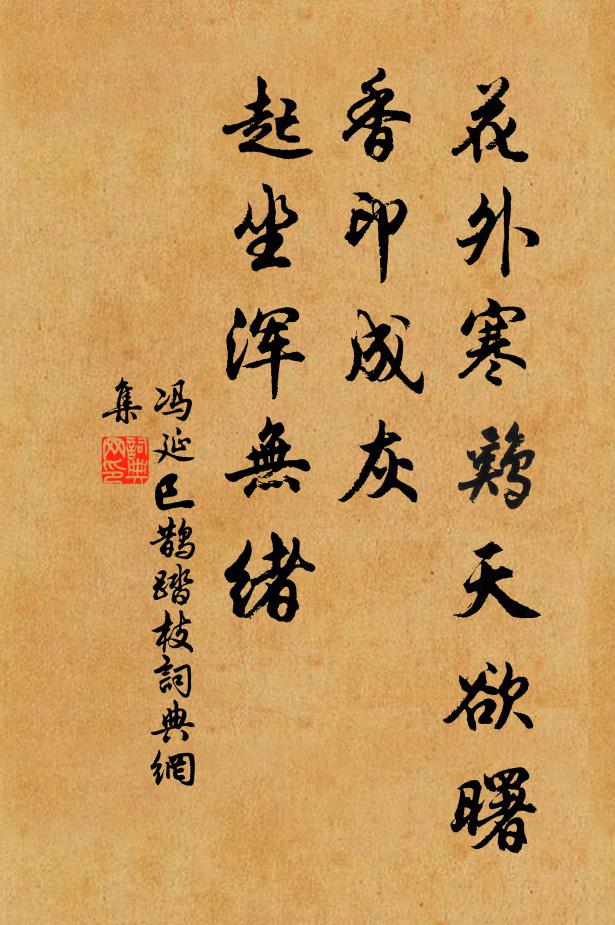 花外寒鷄天欲曙
香印成灰
起坐浑無緒
冯延巳鹊踏枝詞典網
集
詞典
网印